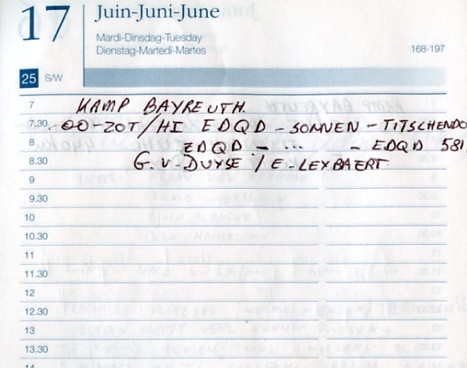 17
Juin-Juni-June
Mardi-Dinsdag-Tuesday
Dienstag-Martedi-Martes
168-197
25 S/W
7 KAMP BAYREUTH
7.30 OO-ZOT/HI EDQD - SONNEN - TITSCHENDO
8 EDQD - ... - EDQD 581
8.30 G.V. DUYSE / E-LEYBAERT
9
9.30
10
10.30
11
11.30
12
12.30
13
13.30
14